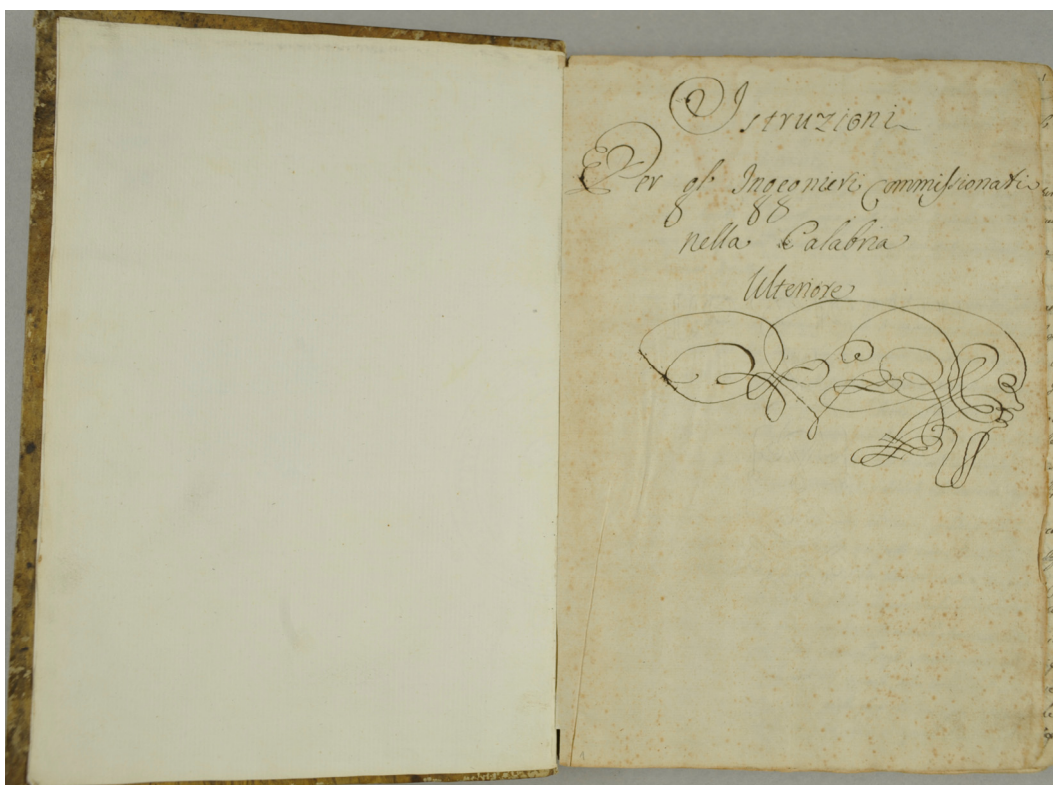 Istruzioni
Per gl' Ingegnieri Commissionati
nella Calabria
Ulteriore